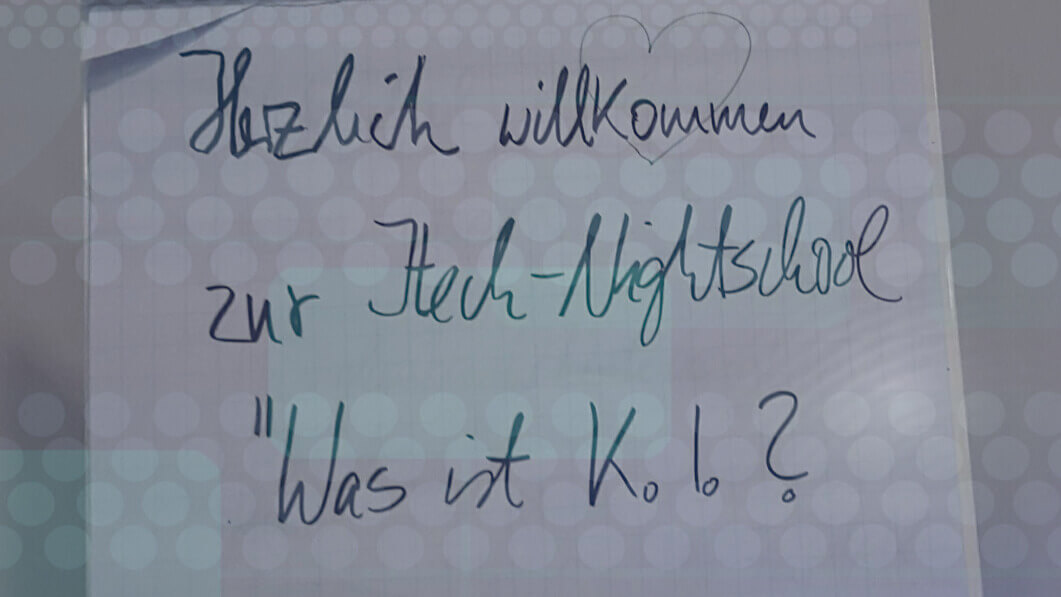 Herzlich willkommen
zur Itech-Nightschool
"Was ist K. I. ?